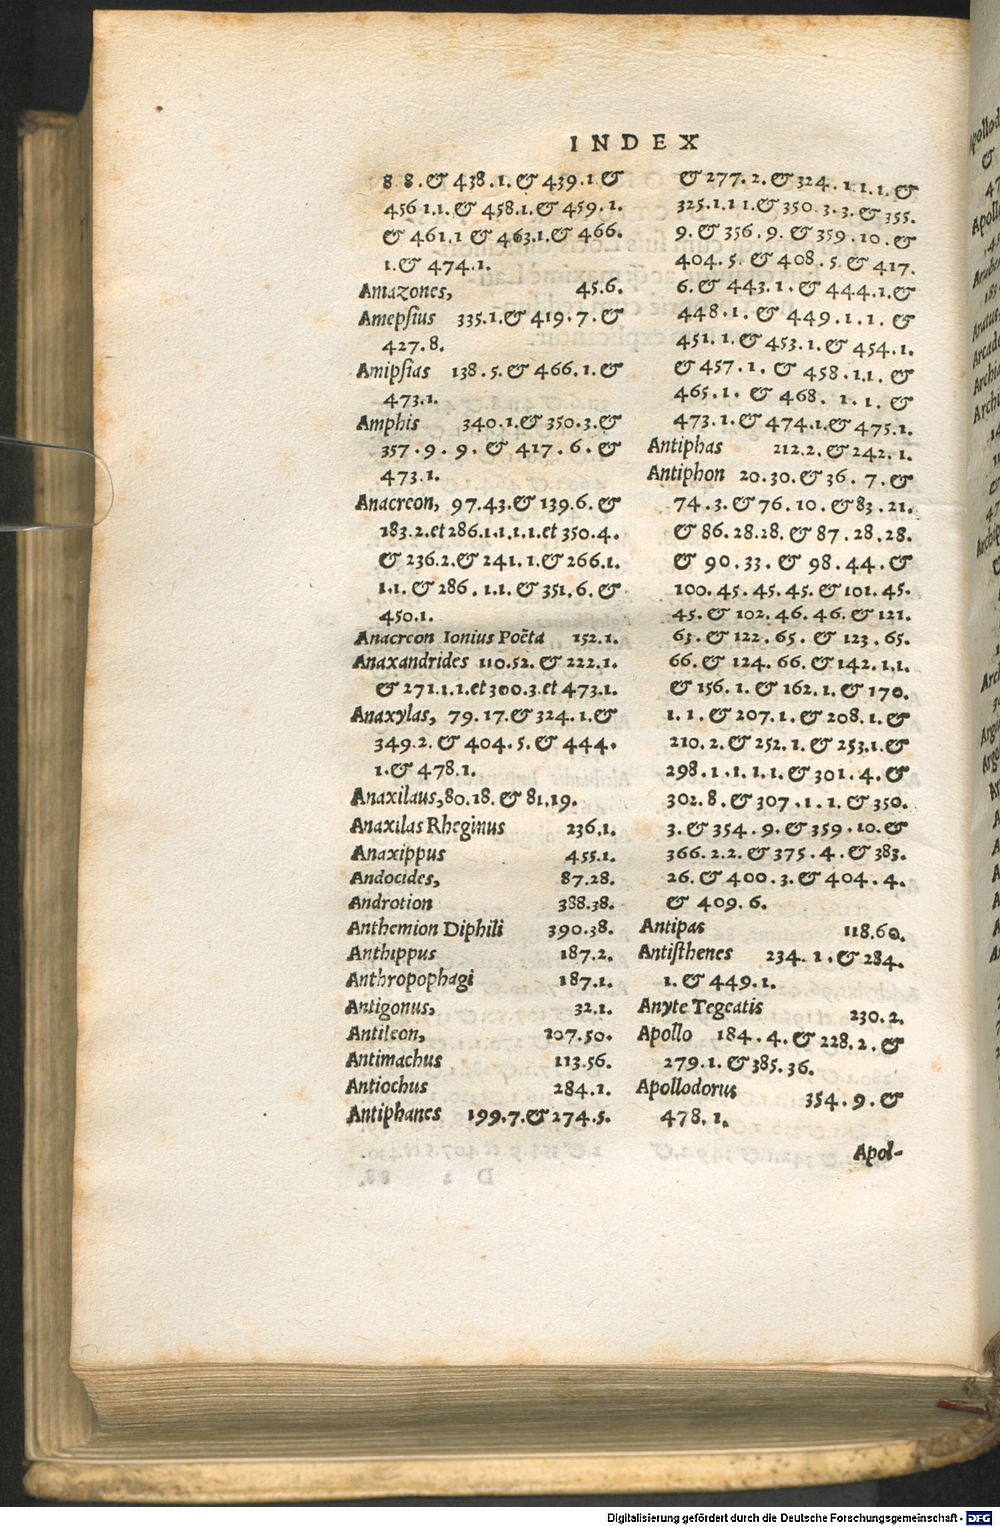 INDEX
8 8.& 438.1.& 439.1 &
456 1.1.& 458.1.& 459.1.
& 461.1 & 463.1.& 466.
1.& 474.1.
Amazones, 45.6.
Amepſius 335.1.& 419.7.&
427.8.
Amipſias 138.5.& 466.1.&
473.1.
Amphis 340.1.& 350.3.&
357.9.9.& 417.6.&
473.1.
Anacreon, 97.43.& 139.6.&
183.2.et 286.1.1.1.1.et 350.4.
& 236.2.& 241.1.& 266.1.
1.1.& 286.1.1.& 351.6.&
450.1.
Anacreon Ionius Poëta 152.1.
Anaxandrides 110.52.& 222.1.
& 271.1.1.et 300.3.et 473.1.
Anaxylas, 79.17.& 324.1.&
349.2.& 404.5.& 444.
1.& 478.1.
Anaxilaus,80.18.& 81,19.
Anaxilas Rheginus 236.1.
Anaxippus 455.1.
Andocides, 87.28.
Androtion 388.38.
Anthemion Diphili 390.38.
Anthippus 187.2.
Anthropophagi 187.1.
Antigonus, 32.1.
Antileon, 207.50.
Antimachus 113.56.
Antiochus 284.1.
Antiphanes 199.7.& 274.5.
& 277.2.& 324.1.1.1.&
325.1.1 1.& 350.3.3.& 355.
9.& 356.9.& 359.10.&
404.5.& 408.5.& 417.
6.& 443.1.& 444.1.&
448.1.& 449.1.1.&
451.1.& 453.1.& 454.1.
& 457.1.& 458.1.1.&
465.1.& 468.1.1.&
473.1.& 474.1.& 475.1.
Antiphas 212.2.& 242.1.
Antiphon 20.30.& 36.7.&
74.3.& 76.10.& 83.21.
& 86.28.28.& 87.28.28.
& 90.33.& 98.44.&
100.45.45.45.& 101.45.
45.& 102.46.46.& 121.
63.& 122.65.& 123.65.
66.& 124.66.& 142.1.1.
& 156.1.& 162.1.& 170.
1.1.& 207.1.& 208.1.&
210.2.& 252.1.& 253.1.&
298.1.1.1.1.& 301.4.&
302.8.& 307.1.1.& 350.
3.& 354.9.& 359.10.&
366.2.2.& 375.4.& 383.
26.& 400.3.& 404.4.
& 409.6.
Antipas 118.60.
Antiſthenes 234.1.& 284.
1.& 449.1.
Anyte Tegeatis 230.2.
Apollo 184.4.& 228.2.&
279.1.& 385.36.
Apollodorus 354.9.&
478.1.
Apol-
Digitalisierung gefördert durch die Deutsche Forschungsgemeinschaft - DFG